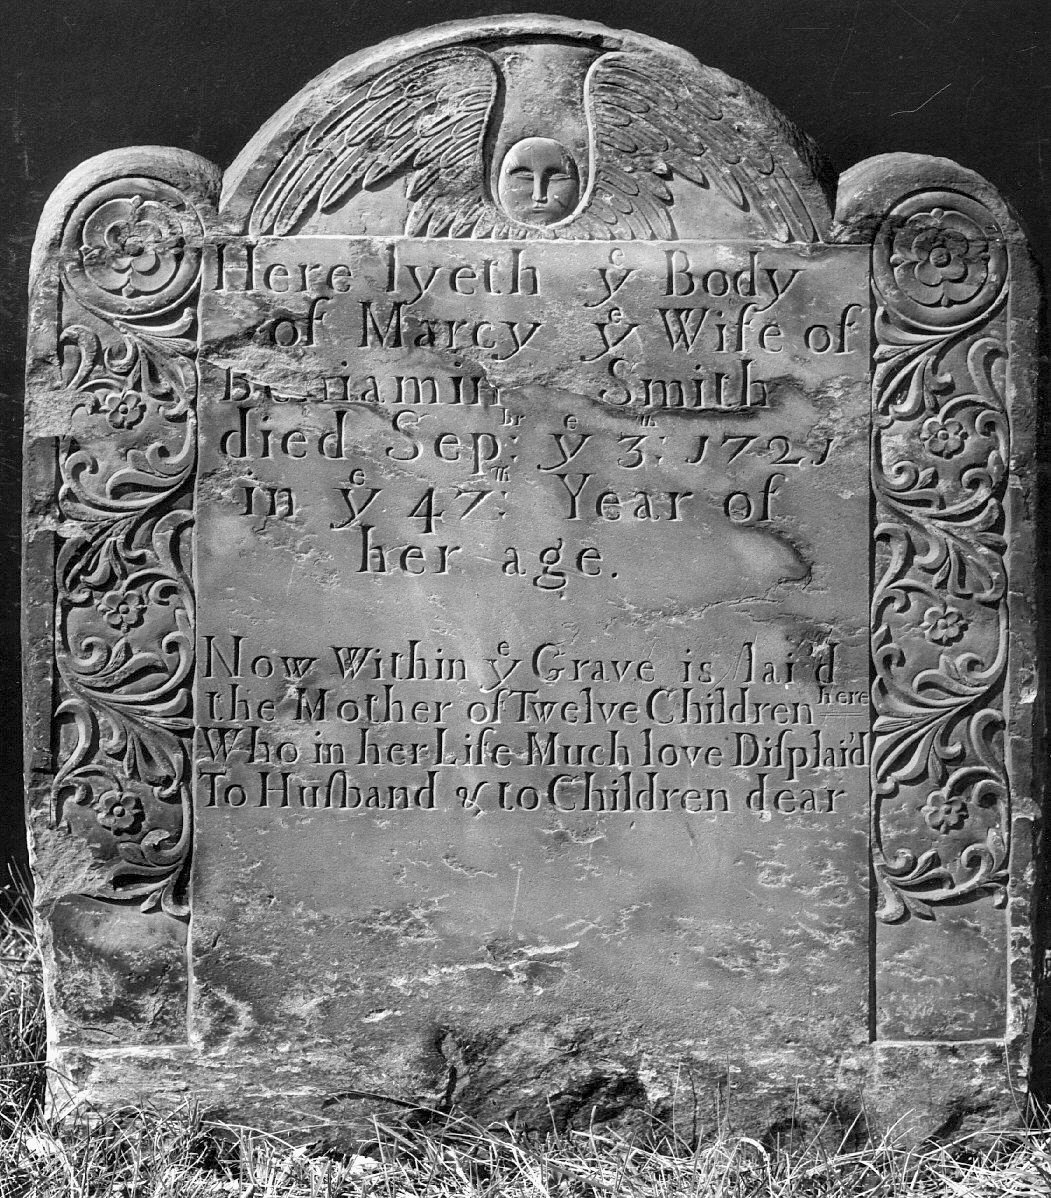 Here lyeth yͤ Body
of Marcy yͤ Wife of
Benjamin Smith
died Sepᵇʳ: yͤ 3ᵗʰ: 1721
in yͤ 47ᵗʰ: Year of
her age.
Now within yͤ Grave is lai'd
the Mother of Twelve Children here
Who in her Life Much love Diſplai'd
To Huſband & to Children dear